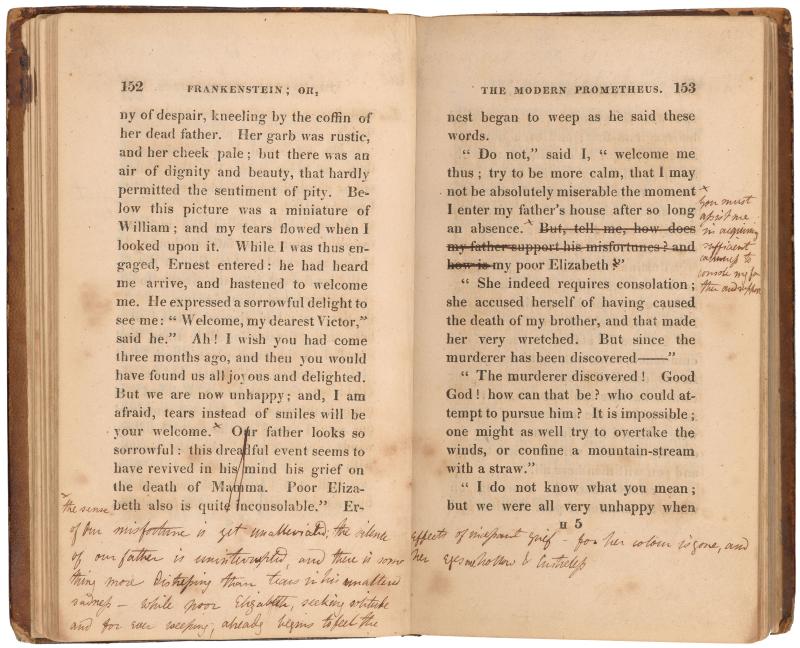 152 FRANKENSTEIN; OR,
ny of despair, kneeling by the coffin of
her dead father. Her garb was rustic,
and her cheek pale; but there was an
air of dignity and beauty, that hardly
permitted the sentiment of pity. Be-
low this picture was a miniature of
William; and my tears flowed when I
looked upon it. While I was thus en-
gaged, Ernest entered: he had heard
me arrive, and hastened to welcome
me. He expressed a sorrowful delight to
see me: “ Welcome, my dearest Victor,”
said he.” Ah! I wish you had come
three months ago, and then you would
have found us all joyous and delighted.
But we are now unhappy; and, I am
afraid, tears instead of smiles will be
your welcome.× Our father looks so
sorrowful: this dreadful event seems to
have revived in his mind his grief on
the death of Mamma. Poor Eliza-
beth also is quite inconsolable.” Er-
× the sense
of our misfortune is yet unalleviated; the silence
of our father is uninterrupted, and there is some
thing more distressing than tears in his unaltered
sadness – while poor Elizabeth, seeking solitude
and for ever weeping, already begins to feel the
THE MODERN PROMETHEUS. 153
nest began to weep as he said these
words.
“ Do not,” said I, “ welcome me
thus; try to be more calm, that I may
not be absolutely miserable the moment
I enter my father's house after so long
an absence.× But, tell me, how does
my father support his misfortunes? and
how is my poor Elizabeth?”
“ She indeed requires consolation;
she accused herself of having caused
the death of my brother, and that made
her very wretched. But since the
murderer has been discovered——”
“ The murderer discovered! Good
God! how can that be? who could at-
tempt to pursue him? It is impossible;
one might as well try to overtake the
winds, or confine a mountain-stream
with a straw.”
“ I do not know what you mean;
but we were all very unhappy when
H 5
×
You must
assist me
in acquiring
sufficient
calmness to
console my fa
ther and support
effects of incessant grief – for her colour is gone, and
her eyes are hollow & lustreless